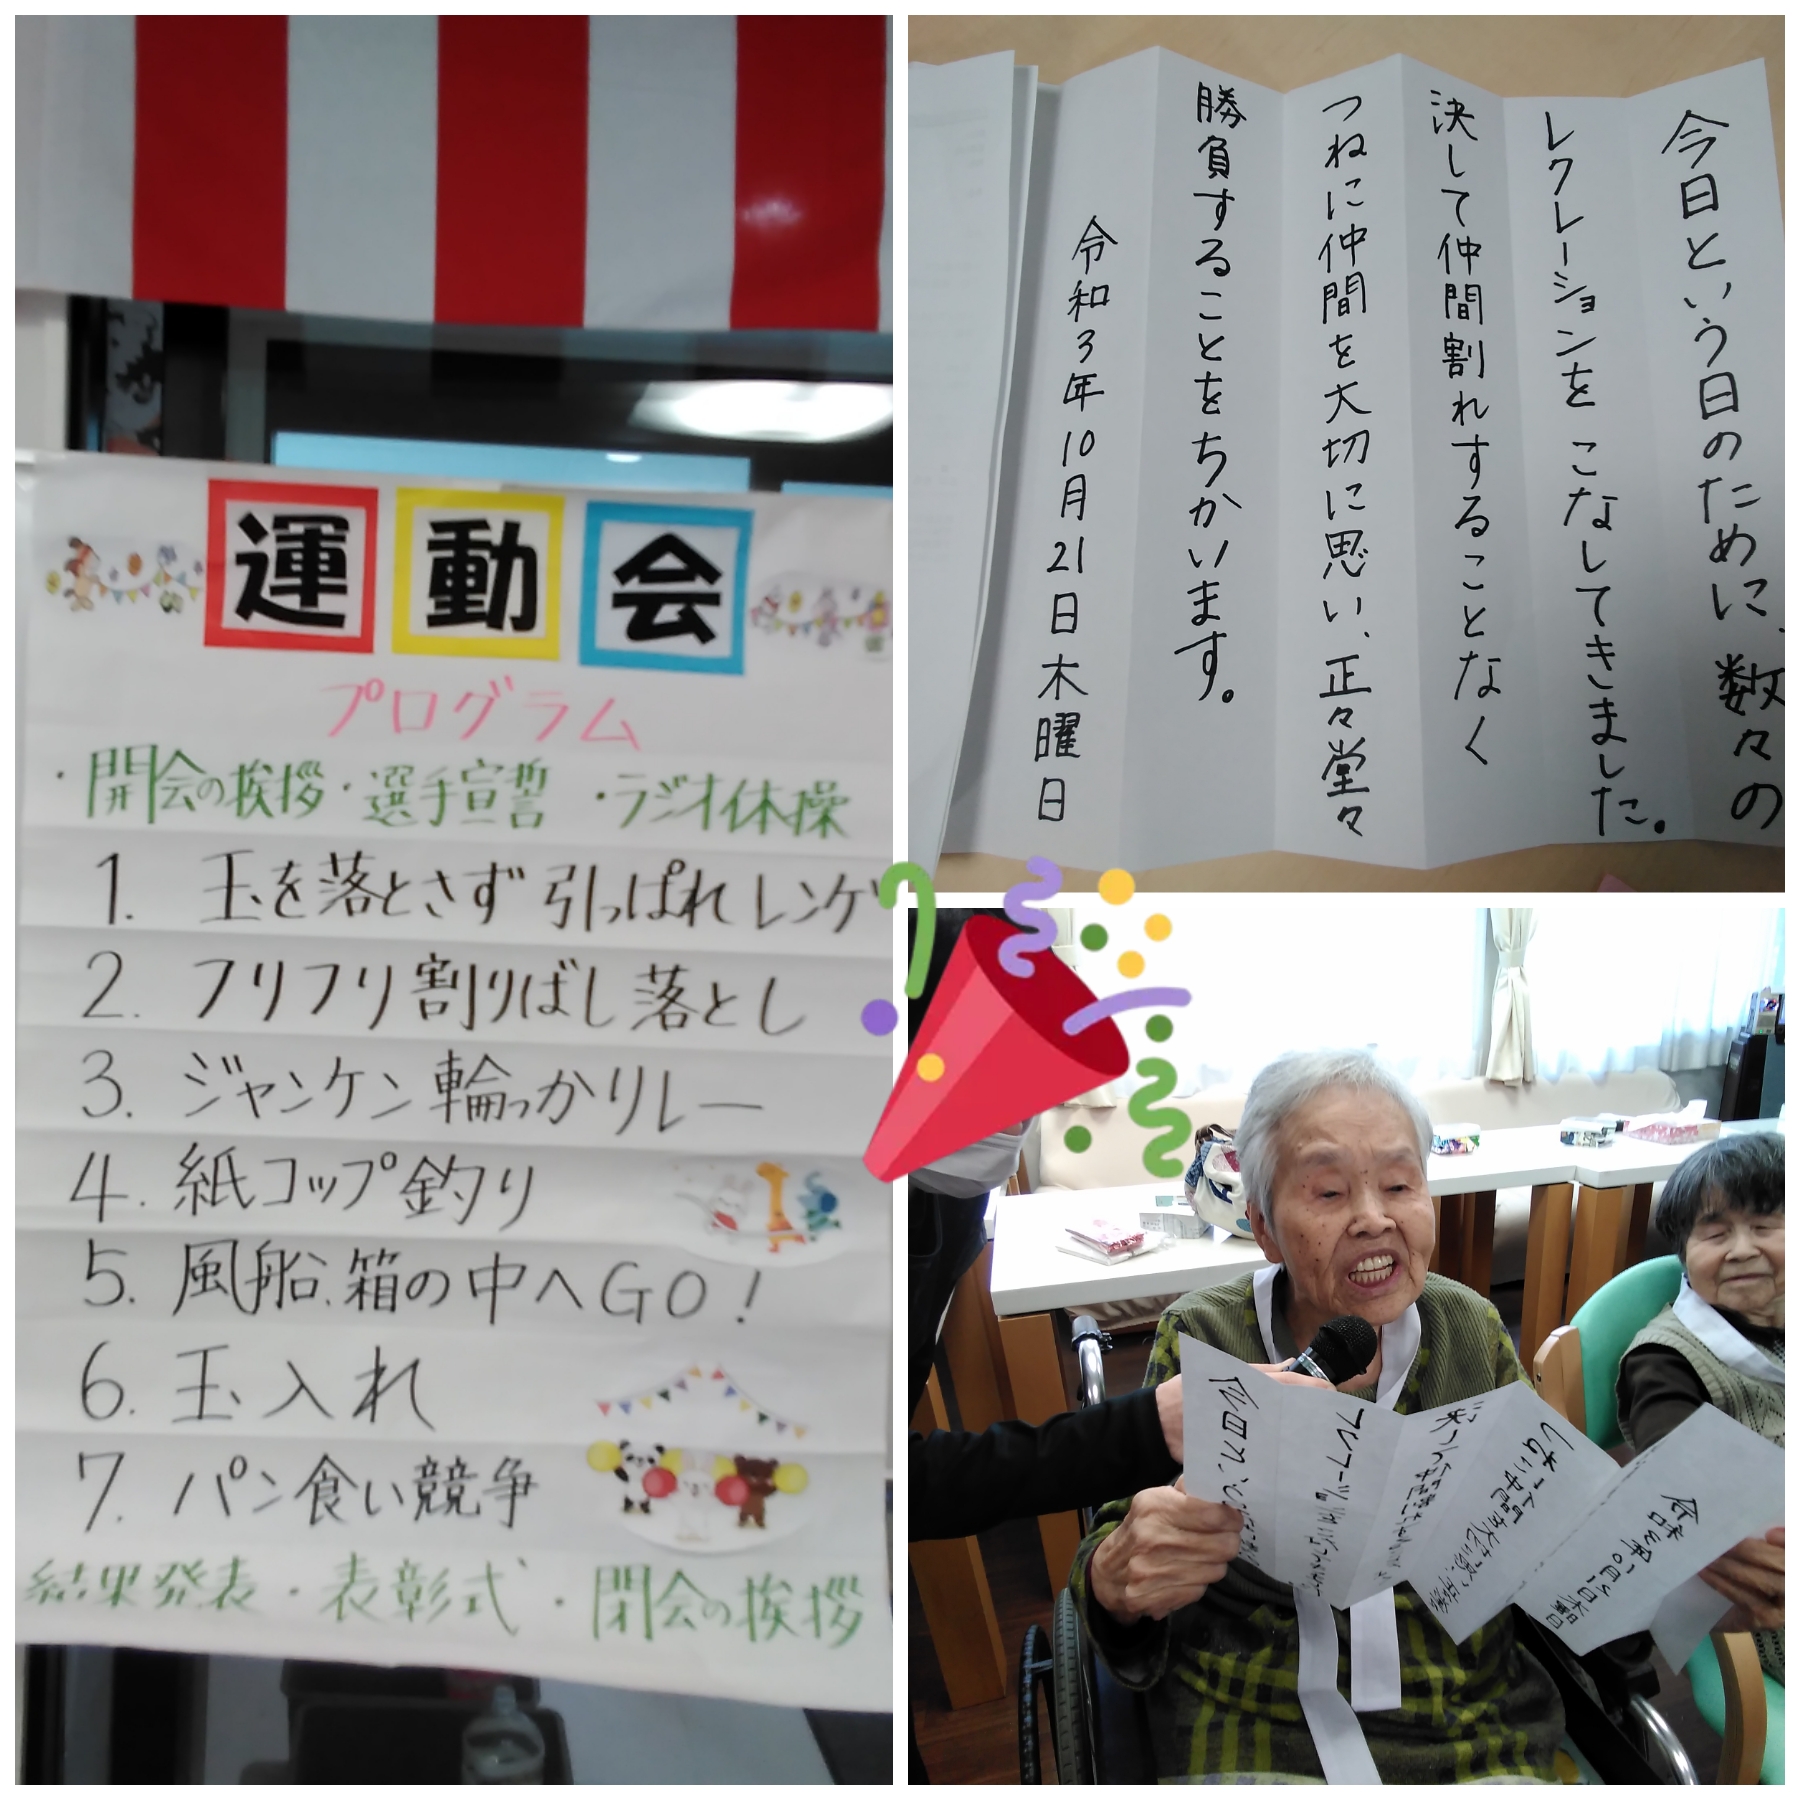 運動会
プログラム
・開会の挨拶・選手宣誓・ラジオ体操
1. 玉を落とさず引っぱれレンゲ
2. フリフリ割りばし落とし
3. ジャンケン輪っかリレー
4. 紙コップ釣り
5. 風船箱の中へGO!
6. 玉入れ
7. パン食い競争
結果発表・表彰式・閉会の挨拶
今日という日のために、数々の
レクレーションをこなしてきました。
決して仲間割れすることなく
つねに仲間を大切に思い、正々堂々
勝負することをちかいます。
令和3年10月21日木曜日